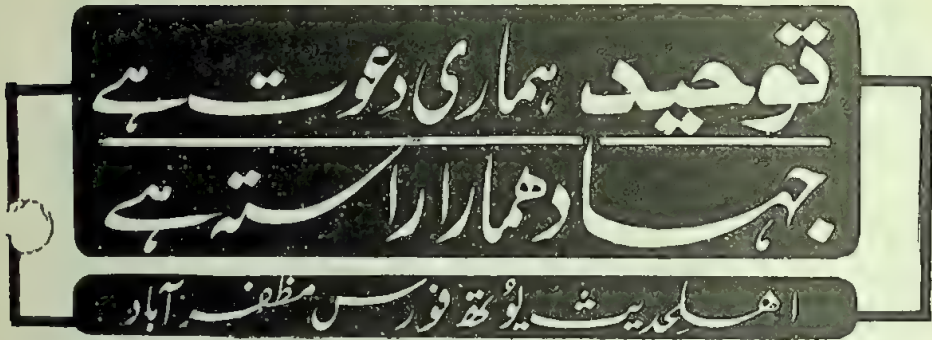 توحید ہماری دعوت ہے
جہاد ھمارا راستہ ہے
اھلحدیث یُوتھ فورس مظفر آباد